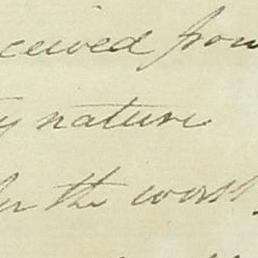 ceived from
y nature
for the worst,